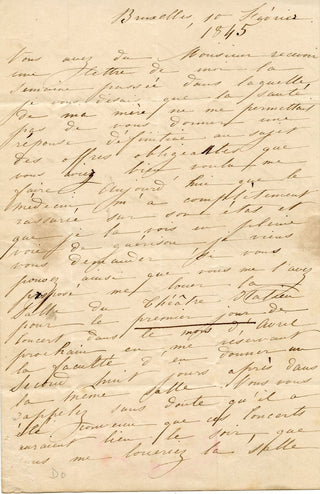 Bruxelles, 10 Février
1845
Vous avez du Monsieur recevoir
une lettre de moi la
semaine passée dans laquelle
je vous disai que la santé
de ma mère ne me permettait
pas de vous donner une
réponse définitive au sujet
des offres obligeantes que
vous avez bien voulu me
faire. Aujourd'hui que le
médecin m'a complètement
rassurée sur son état et
que je la vois en pleine
voie de guérison je viens
vous demander si vous
pouvez ainsi que vous me l'avez
proposé me louer la
salle du Théâtre Italien
pour le premier jour de
concert dans le mois d'Avril
prochain en me réservant
la faculté d'en donner un
second huit jours après dans
la même salle. Vous vous
rappelez sans doute qu'il a
été convenu que ces concerts
auraient lieu le soir, que
vous me loueriez la salle